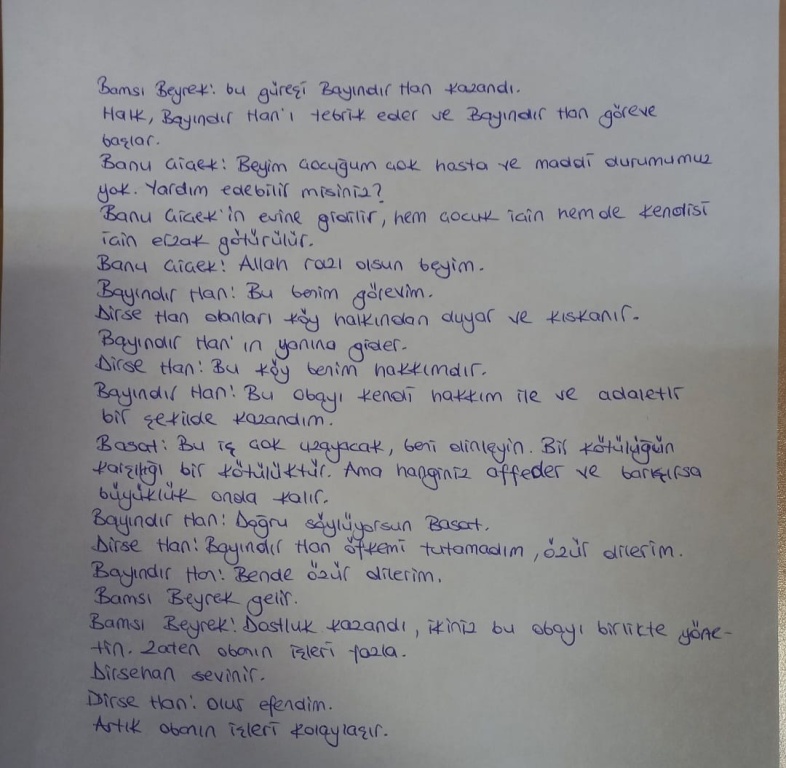 Bamsı Beyrek: bu güreşi Bayındır Han kazandı.
Halk, Bayındır Han'ı tebrik eder ve Bayındır Han göreve
başlar.
Banu Çiçek: Beyim çocuğum çok hasta ve maddi durumumuz
yok. Yardım edebilir misiniz?
Banu Çiçek'in evine gidilir, hem çocuk için hem de kendisi
için erzak götürülür.
Banu Çiçek: Allah razı olsun beyim.
Bayındır Han: Bu benim görevim.
Dirse Han olanları köy halkından duyar ve kıskanır.
Bayındır Han'ın yanına gider.
Dirse Han: Bu köy benim hakkımdır.
Bayındır Han: Bu obayı kendi hakkım ile ve adaletli
bir şekilde kazandım.
Basat: Bu iş çok uzayacak, beni dinleyin. Bir kötülüğün
karşılığı bir kötülüktür. Ama hanginiz affeder ve barışırsa
büyüklük onda kalır.
Bayındır Han: Doğru söylüyorsun Basat.
Dirse Han: Bayındır Han öfkemi tutamadım, özür dilerim.
Bayındır Han: Bende özür dilerim.
Bamsı Beyrek gelir.
Bamsı Beyrek: Dostluk kazandı, ikiniz bu obayı birlikte yöne-
tin. Zaten obanın işleri fazla.
Dirsehan sevinir.
Dirse Han: Olur efendim.
Artık obanın işleri kolaylaşır.